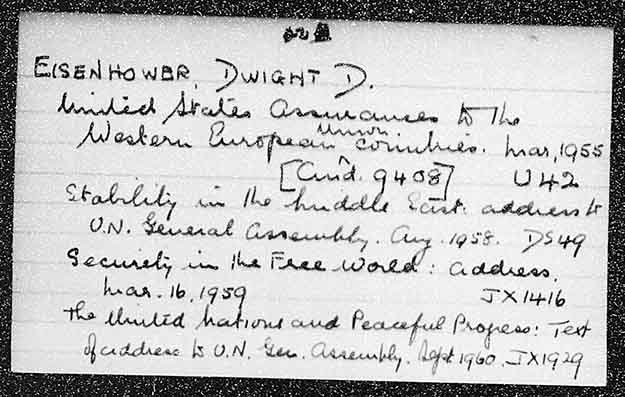 EISENHOWER, DWIGHT D.
United States assurances to the
Western European Union countries. Mar, 1955
[Cmd. 9408] U42
Stability in the Middle East: address to
U.N. General Assembly. Aug. 1958. DS49
Security in the Free World: address,
Mar. 16, 1959 JX1416
The United Nations and Peaceful Progress: Text
of address to U.N. Gen. Assembly. Sept 1960. JX1929